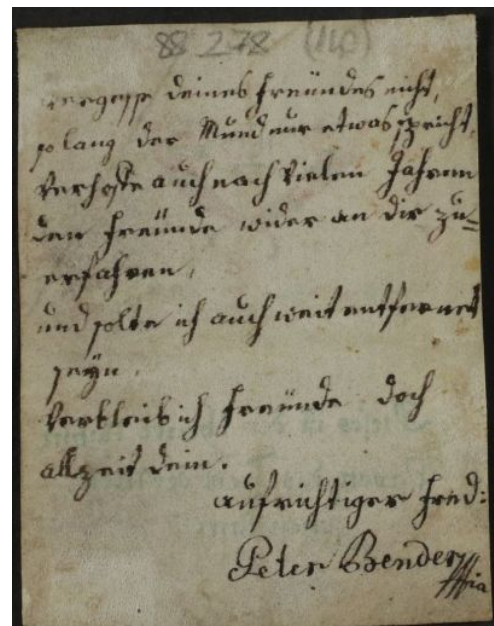 88 278 (140)
vergesse deines freündes nicht,
so lang der Mund nur etwas spricht,
Verhoffe auch nach Vielen Jahren
den freünde wider an dir zu=
erfahren,
und solte ich auch weit entfernet
seyn.
Verbleib ich freünde doch
allzeit dein.
aufrichtiger fred:
Peter Bender